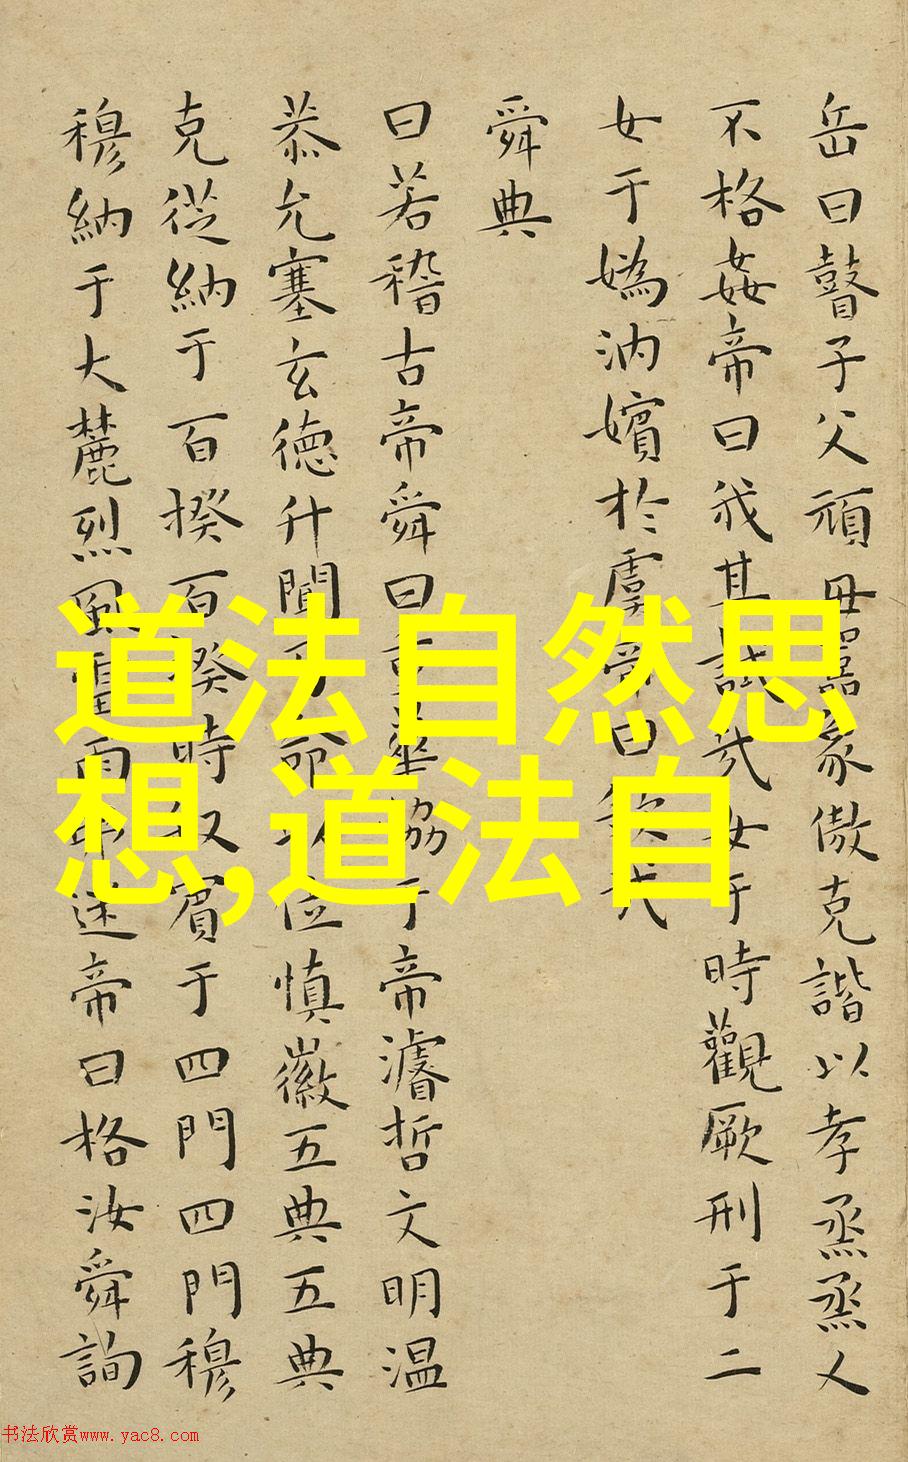 岳曰瞽子父頑毋嚚象傲克諧以孝烝烝乂
不格姦帝曰我其試哉女于時觀厥刑于二
女于媯汭嬪於虞帝曰欽哉
舜典
曰若稽古帝舜曰重華協于帝濬哲文明温
恭允塞玄德升聞乃命以位慎徽五典五典
克從納于百揆百揆時叙賓于四門四門穆
穆納于大麓烈風雷雨弗迷帝曰格汝舜詢
道法自然思
想,道法自
书法欣赏www.yac8.com